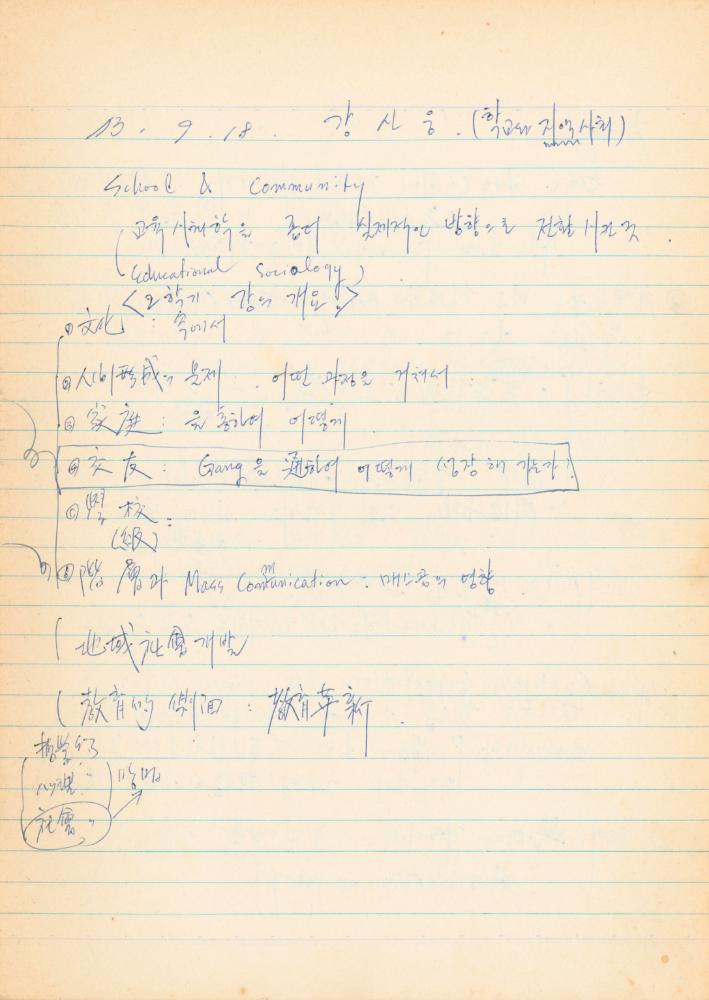 13. 9. 18. 강 신 웅. (학교와 지역사회)
School & Community
교육사회학을 좀더 실제적인 방향으로 전환시킨 것.
(Educational Sociology)
<2학기 강의 개요>
文化 : 속에서
人間形成의 문제. 어떤 과정을 거쳐서
家庭 : 을 통하여 어떻게
交友 : Gang을 通하여 어떻게 성장해 가는가?
學校 :
(級)
階層과 Mass Communication : 매스콤의 영향
地域社會개발
敎育的 側面 : 敎育革新.
哲學的
心理 〃 方法
社會 〃